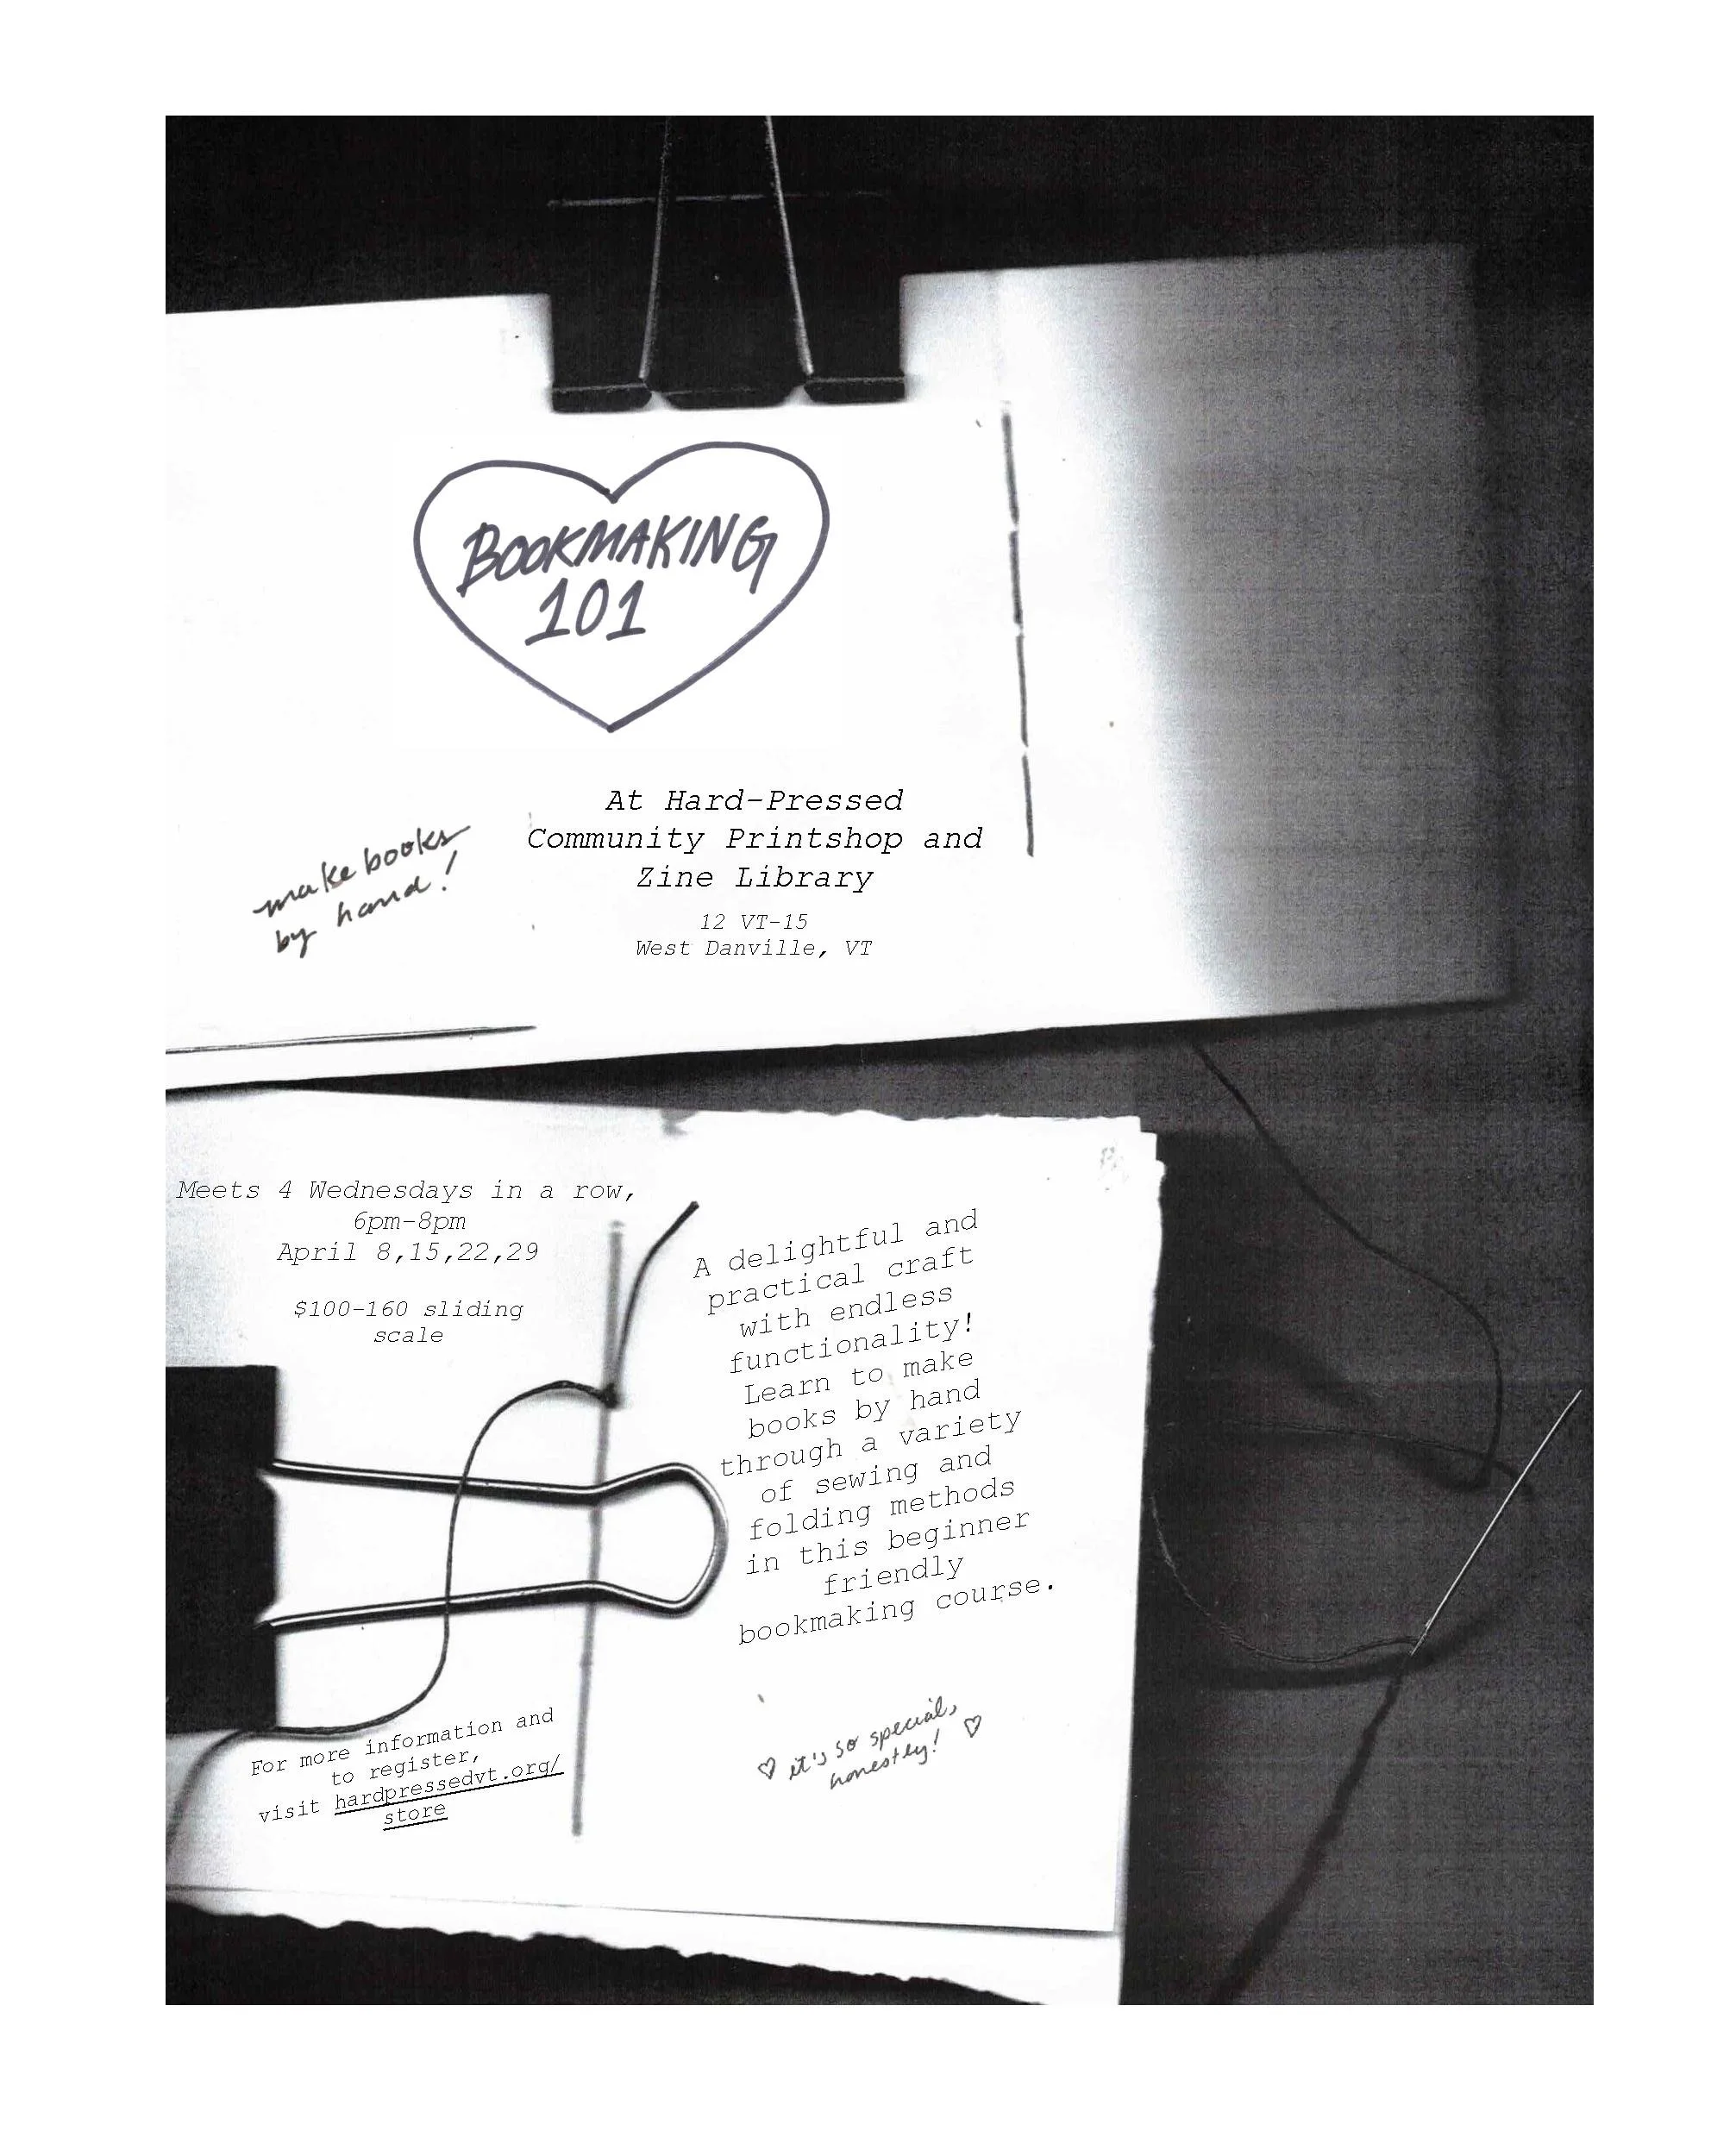 BOOKMAKING
101
make books
by hand!
At Hard-Pressed
Community Printshop and
Zine Library
12 VT-15
West Danville, VT
Meets 4 Wednesdays in a row,
6pm-8pm
April 8,15,22,29
$100-160 sliding
scale
A delightful and
practical craft
with endless
functionality!
Learn to make
books by hand
through a variety
of sewing and
folding methods
in this beginner
friendly
bookmaking course.
♡ it's so special,
honestly! ♡
For more information and
to register,
visit hardpressedvt.org/
store